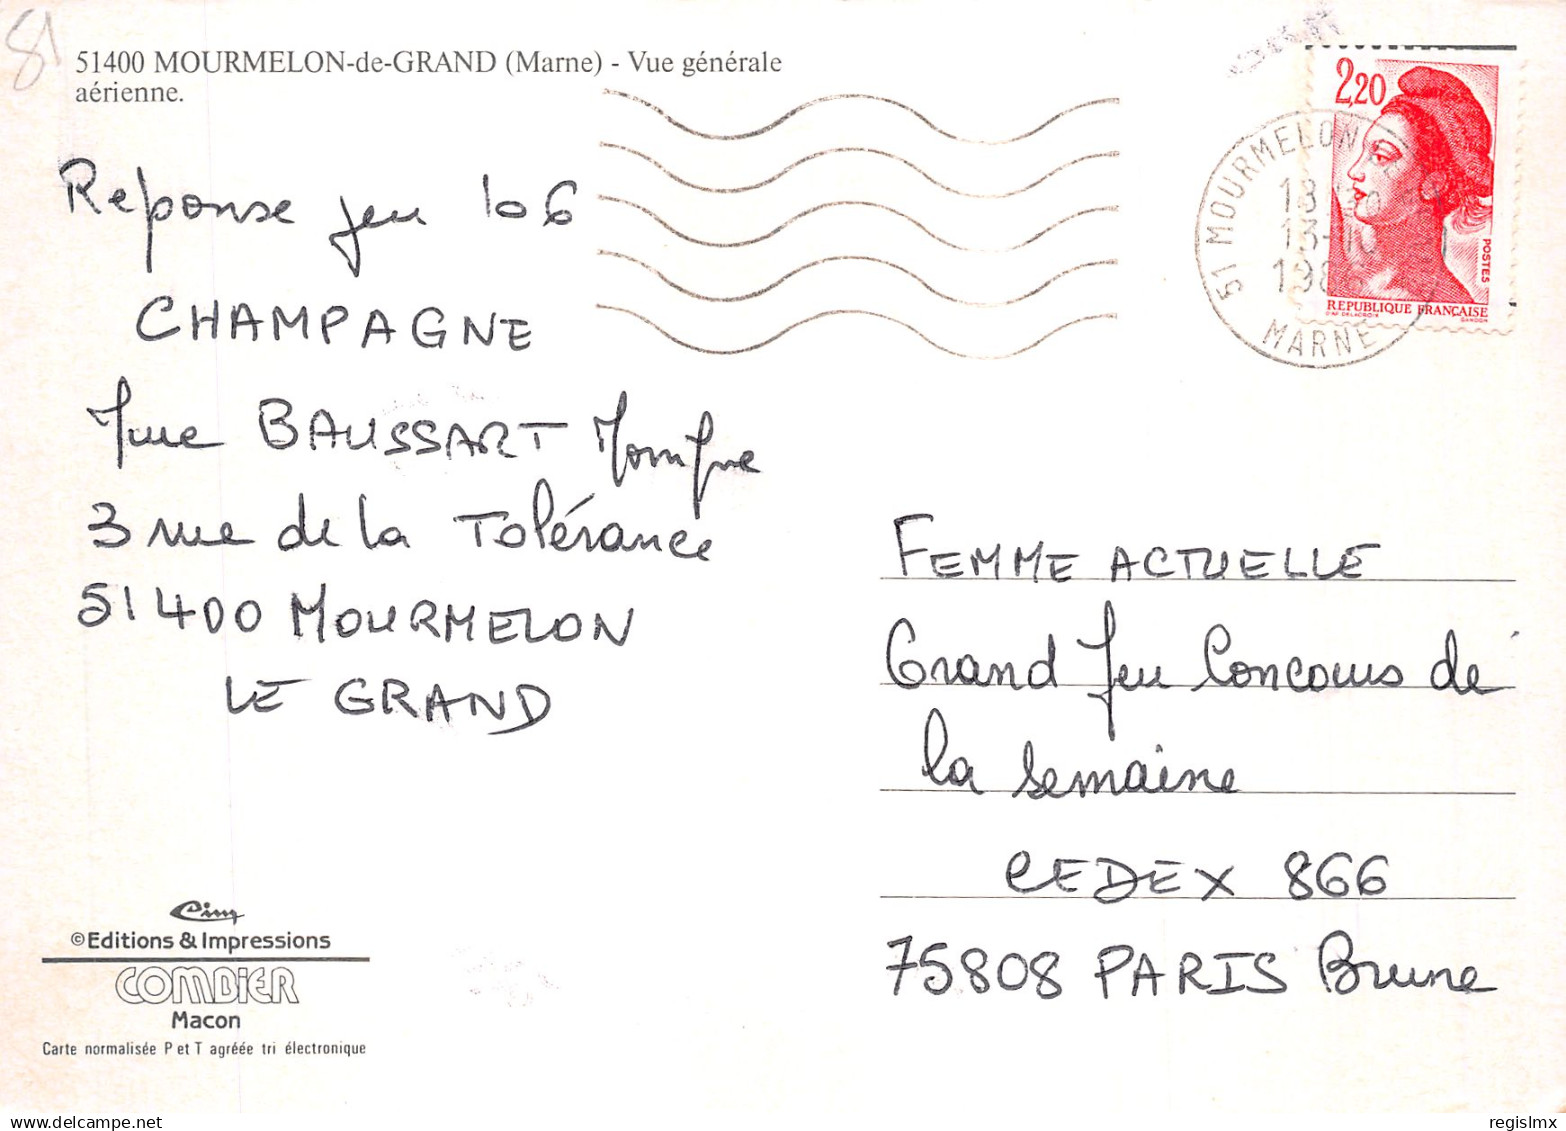 81
51400 MOURMELON-de-GRAND (Marne) - Vue générale
aérienne.
Reponse jeu 106
CHAMPAGNE
Mme BAUSSART Monique
3 rue de la Tolérance
51400 MOURMELON
LE GRAND
2,20
POSTES
REPUBLIQUE FRANÇAISE
D'AP. DELACROIX GANDON
51 MOURMELON
13-10
MARNE
FEMME ACTUELLE
Grand Jeu Concours de
la semaine
CEDEX 866
75808 PARIS Brune
Cim
©Editions & Impressions
COMBIER
Macon
Carte normalisée P et T agréée tri électronique
regislmx